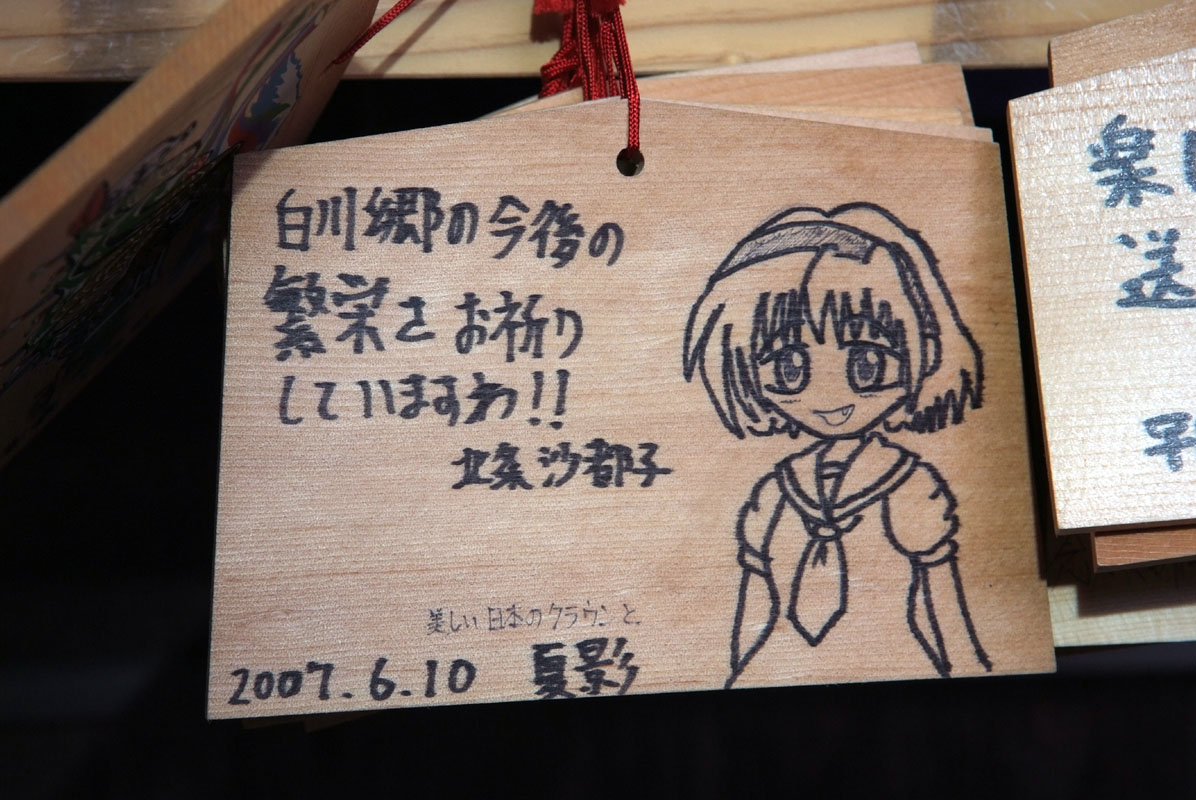 白川郷の今後の
繁栄をお祈り
していますわ!!
北条沙都子
美しい日本のクラウンと、
2007.6.10 夏影
楽
送